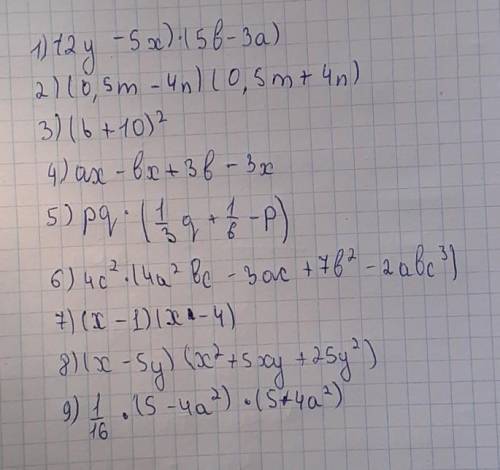 1) (2y - 5x)·(5в - 3a)
2) (0,5m - 4n) (0,5m + 4n)
3) (b + 10)²
4) ax - вx + 3в - 3x
5) pq · (1/3 q + 1/6 - p)
6) 4c² · (4a² вc - 3ac + 7в² - 2aвc³)
7) (x - 1)(x - 4)
8) (x - 5y) (x² + 5xy + 25y²)
9) 1/16 · (5 - 4a²) · (5 + 4a²)